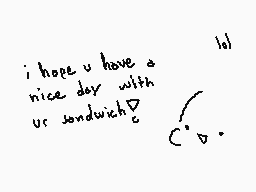 lol
i hope u have a
nice day with
ur sandwich